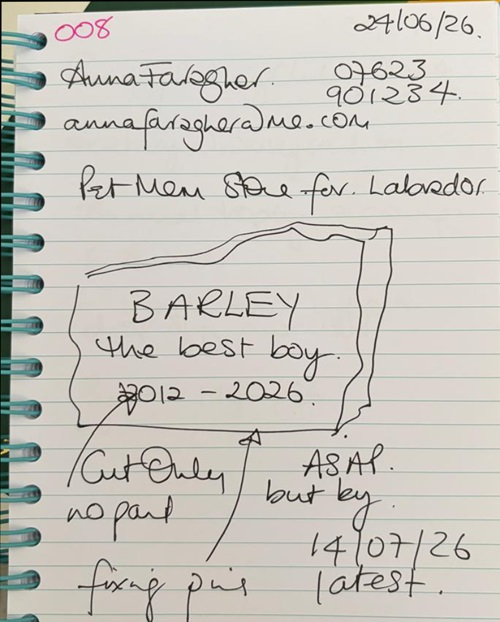 008
24/06/26.
Anna Faragher.
07623
901234.
annafaragher@me.com
Pet Mem Stone for. Labrador.
BARLEY
the best boy.
2012 - 2026.
Cut Only
no paint
ASAP.
but by
14/07/26
latest.
fixing pins